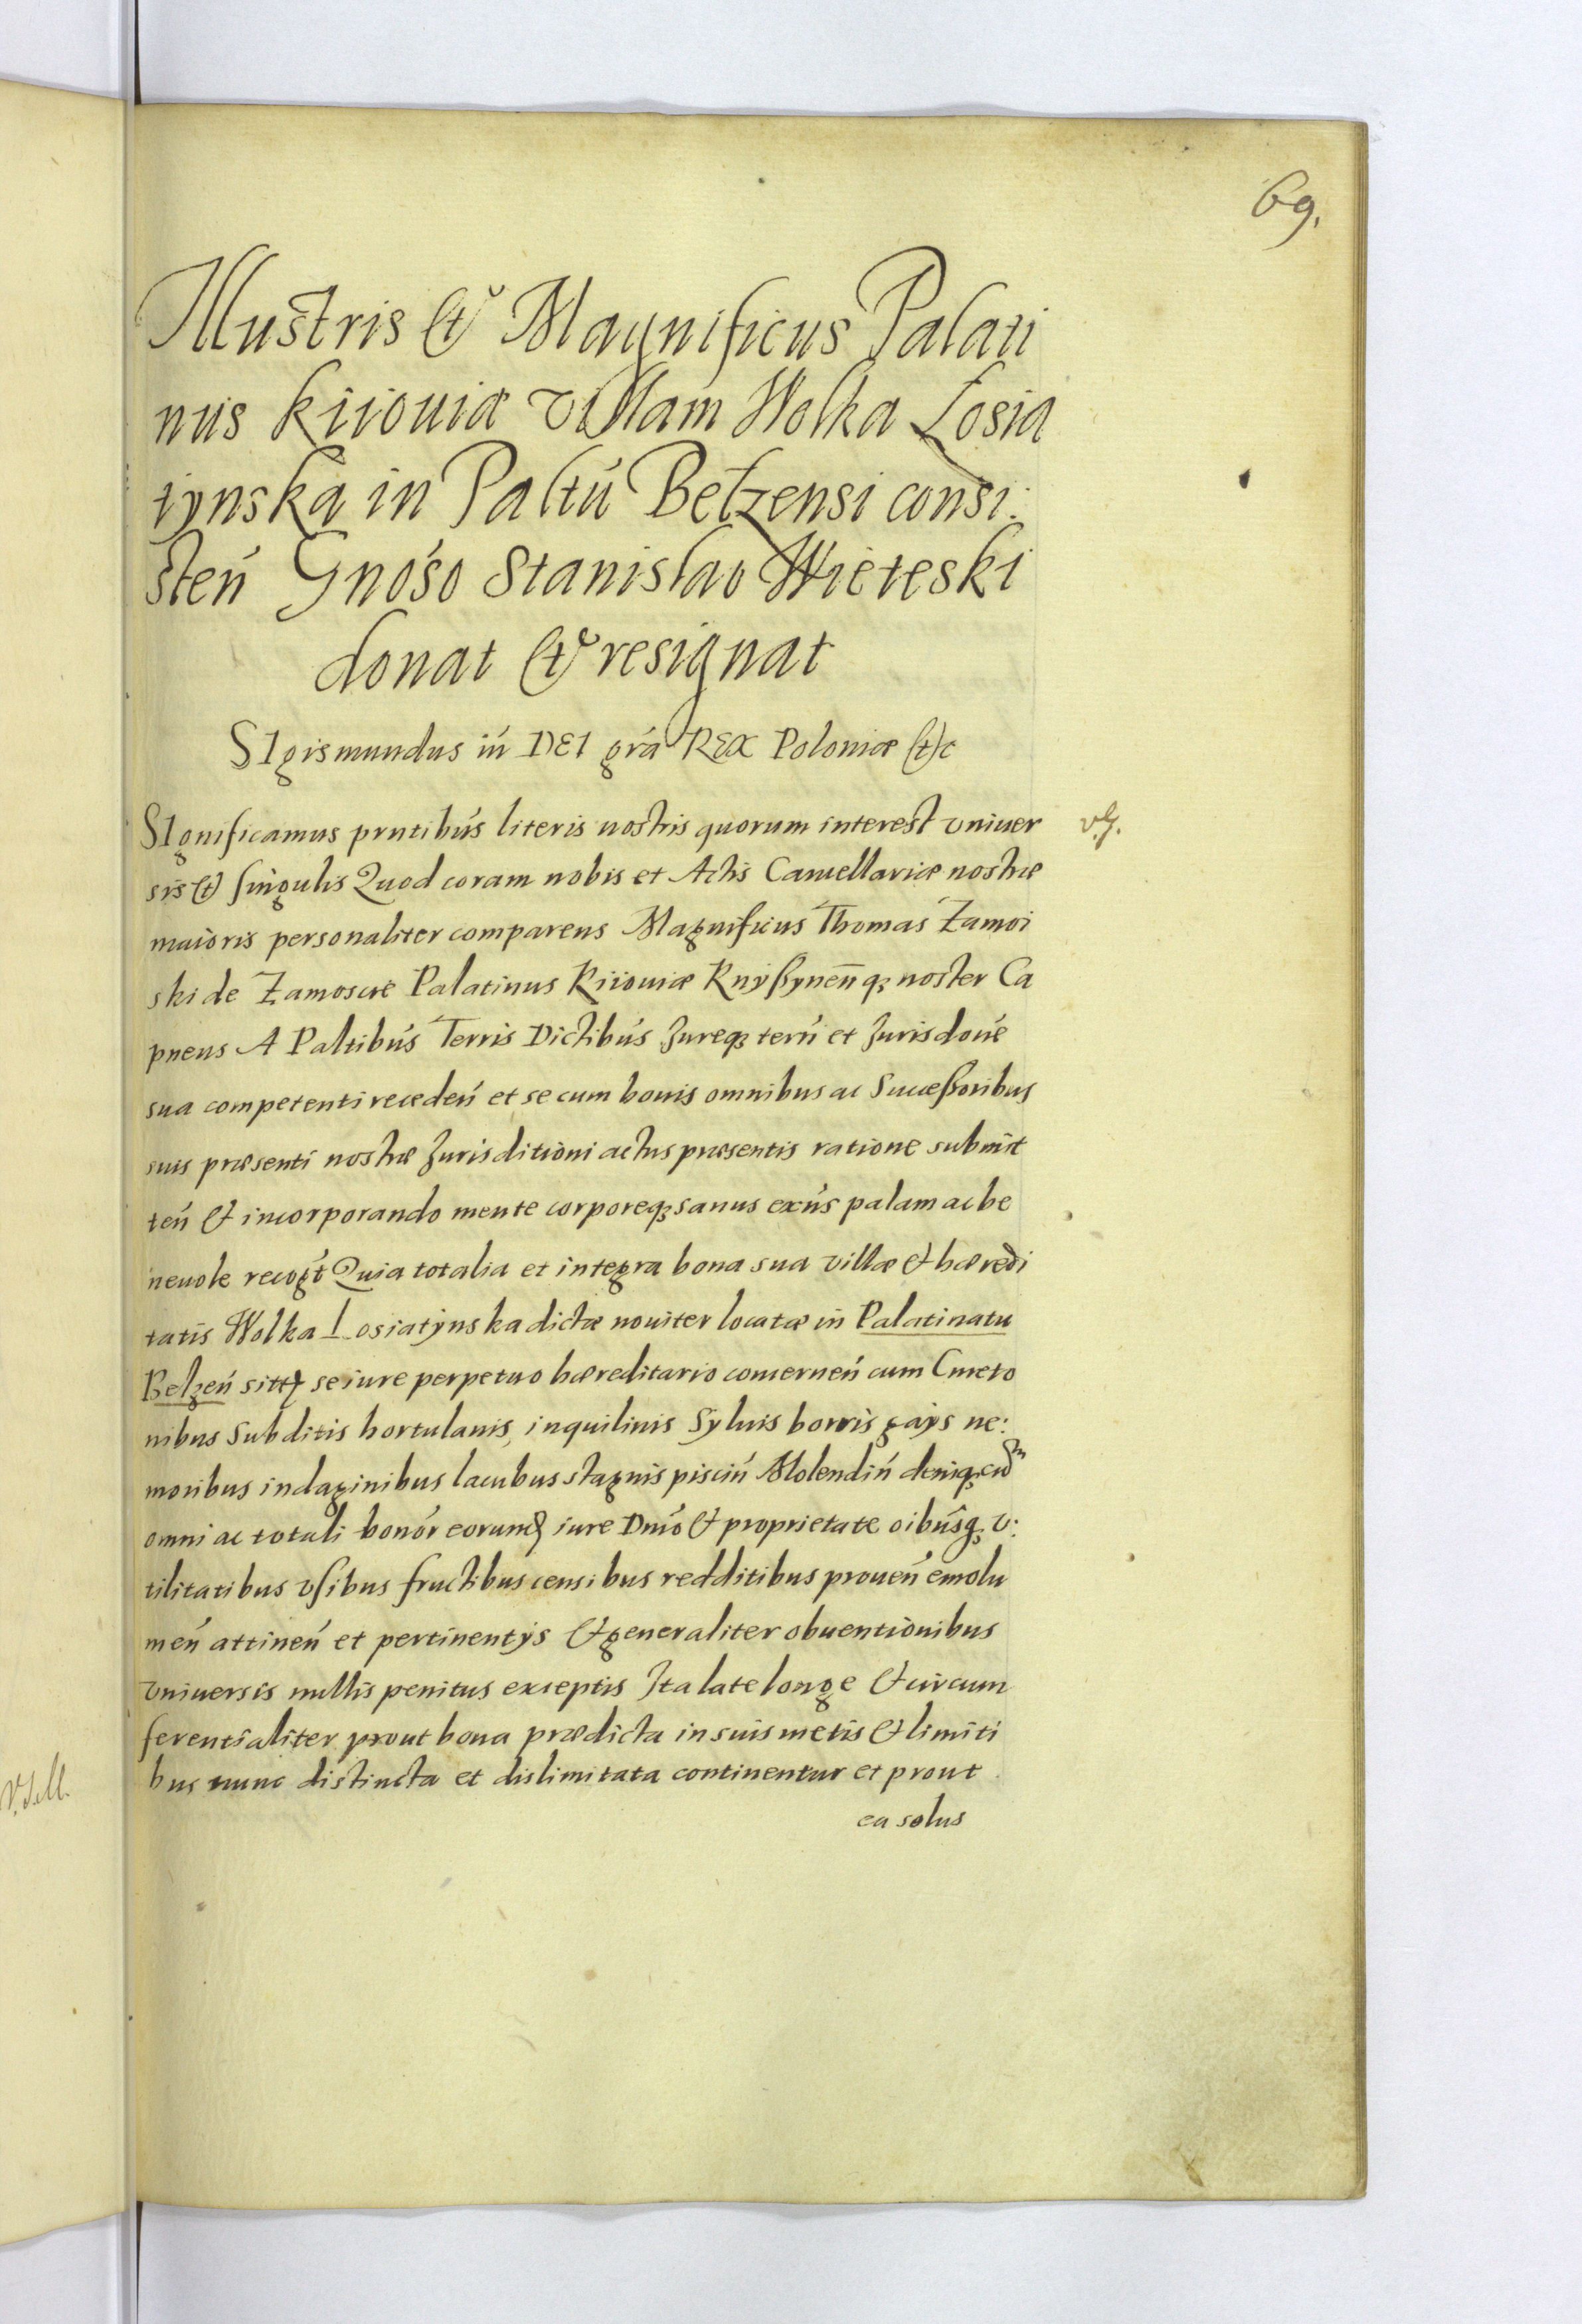 69.
Illustris et Magnificus Palati
nus Kiiouiæ villam Wolka Łosia
tynska in Paltú Belzensi consi:
steń Gnóso Stanislao Wieteski
donat et resignat
SIgismundus iií DEI grá REX Poloniæ etc
SIgnificamus prntibús literis nostris quorum interest vniuer
sis et singulis Quod coram nobis et Actis Cancellariæ nostræ
maioris personaliter comparens Magnificus Thomas Zamoi
ski de Zamoscie Palatinus Kiiouiæ Knyßynen̄q3 noster Ca
pneus A Paltibús Terris Dictibús Jureq3 terń et Jurisdoné
sua competenti receden̄ et se cum bonis omnibus ac Succeßoribus
suis præsenti nostræ Jurisditioni actus præsentis ratione submit
teń et incorporando mente corporeq3 sanus exńs palam ac be
neuole recogt́ Quia totalia et integra bona sua villæ et hæredi
tatis Wolka Łosiatynska dictæ nouiter locatæ in Palatinatu
Belzeń sitt se iure perpetuo hæreditario concerneń cum Cmeto
nibus Subditis hortulanis, inquilinis Syluis borris gays ne:
moribus indaginibus lacubus stagnis pisciń Molendiń deniq3 cum
omni ac totali bonór eorund iure Dnío et proprietate oibúsq3 v:
tilitatibus vsibus fructibus censibus redditibus proueń emolu
meń attineń et pertinentys et generaliter obuentionibus
vniuersis nullis penitus exceptis Ita late longe et circum
ferentialiter prout bona prædicta in suis metis et limiti
bus nunc distincta et dislimitata continentur et prout
ea solus